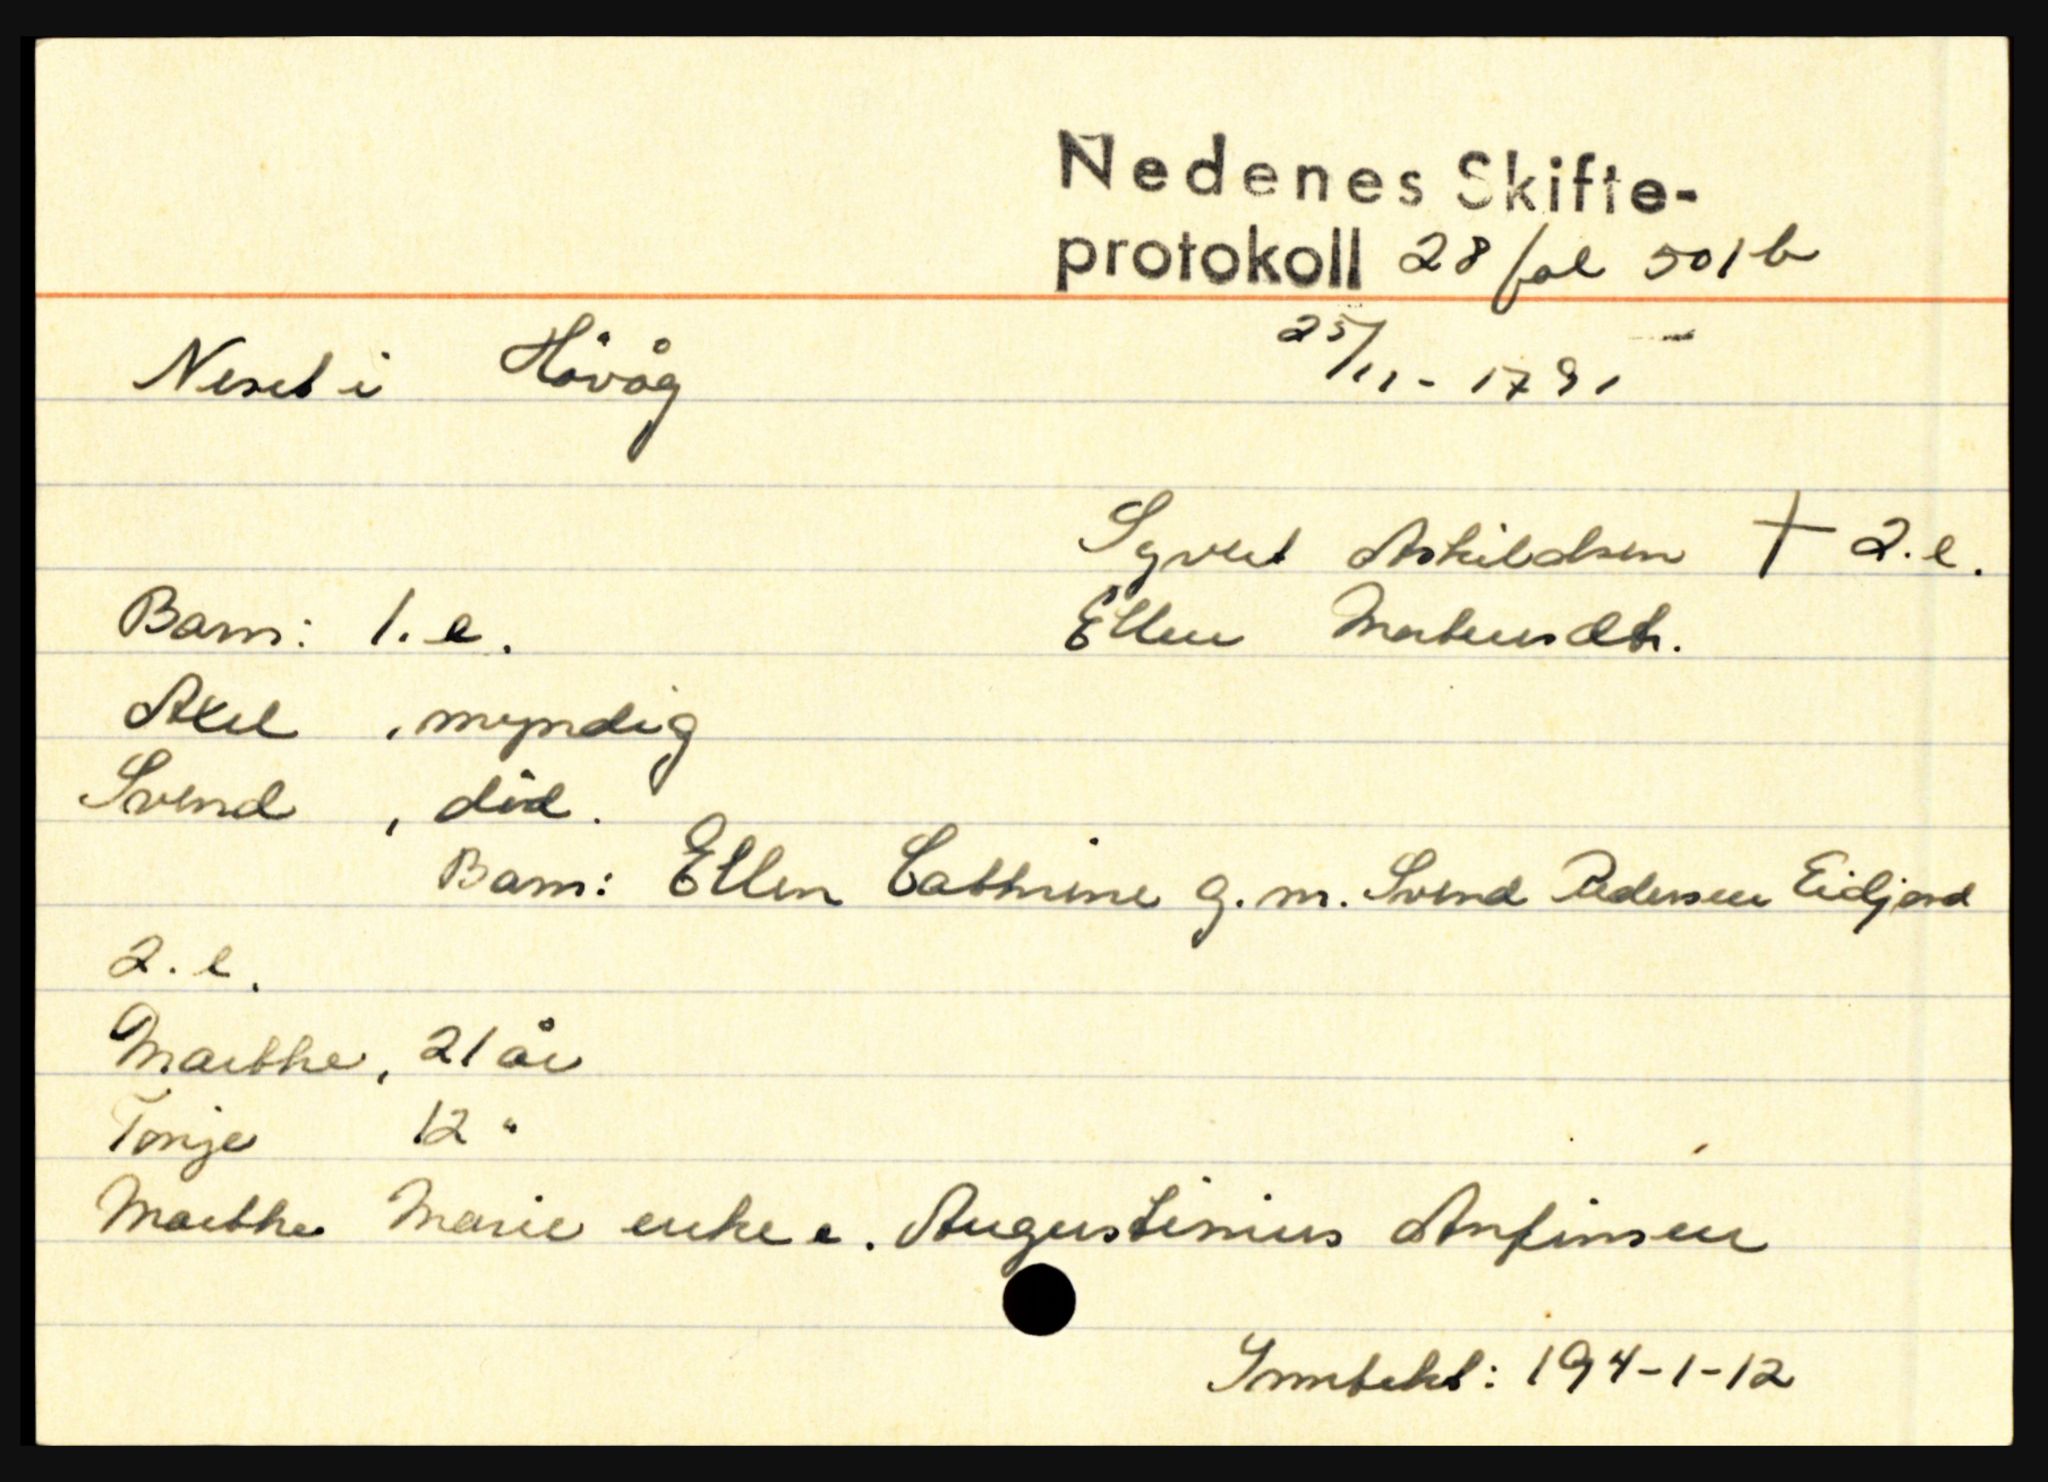 Nedenes Skifte-
protokoll 28 fol 501b
Neset i Høvåg 25/11-1791
Syvert Askildsen † 2.e.
Barn: 1.e. Ellen Markusdtr.
Axel , myndig
Svend , död.
Barn: Ellen Cathrine g.m. Svend Pedersen Eidjord
2.e.
Marthe, 21 år
Tonje 12 "
Marthe Marie enke e. Augustinius Anfinsen
Inntekt: 194-1-12